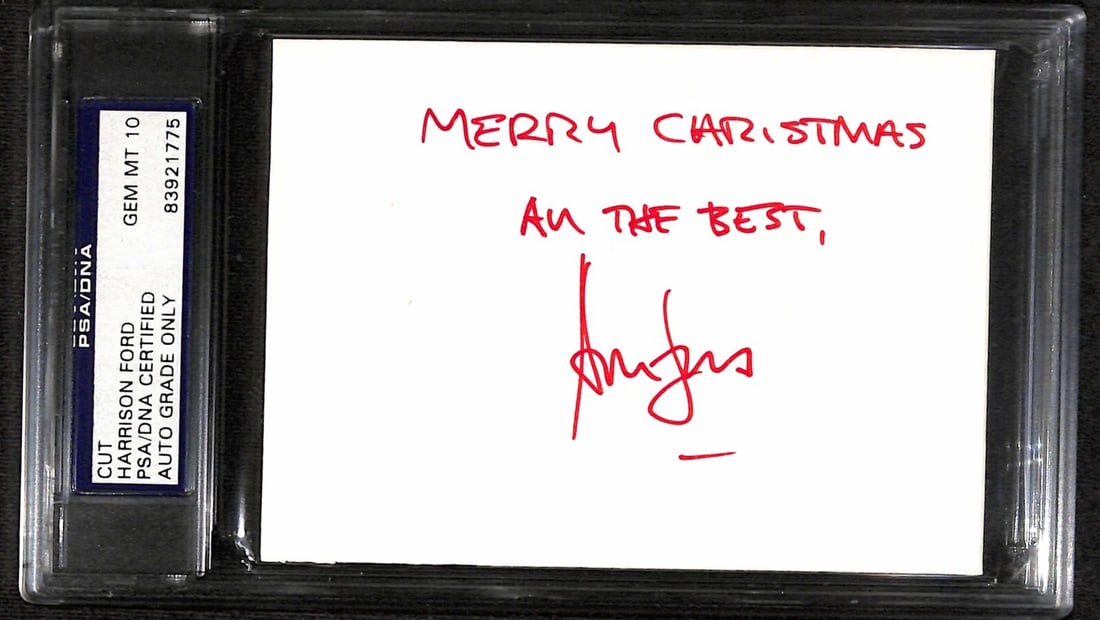 PSA/DNA
CUT
HARRISON FORD
PSA/DNA CERTIFIED
AUTO GRADE ONLY
GEM MT 10
83921775
MERRY CHRISTMAS
ALL THE BEST,